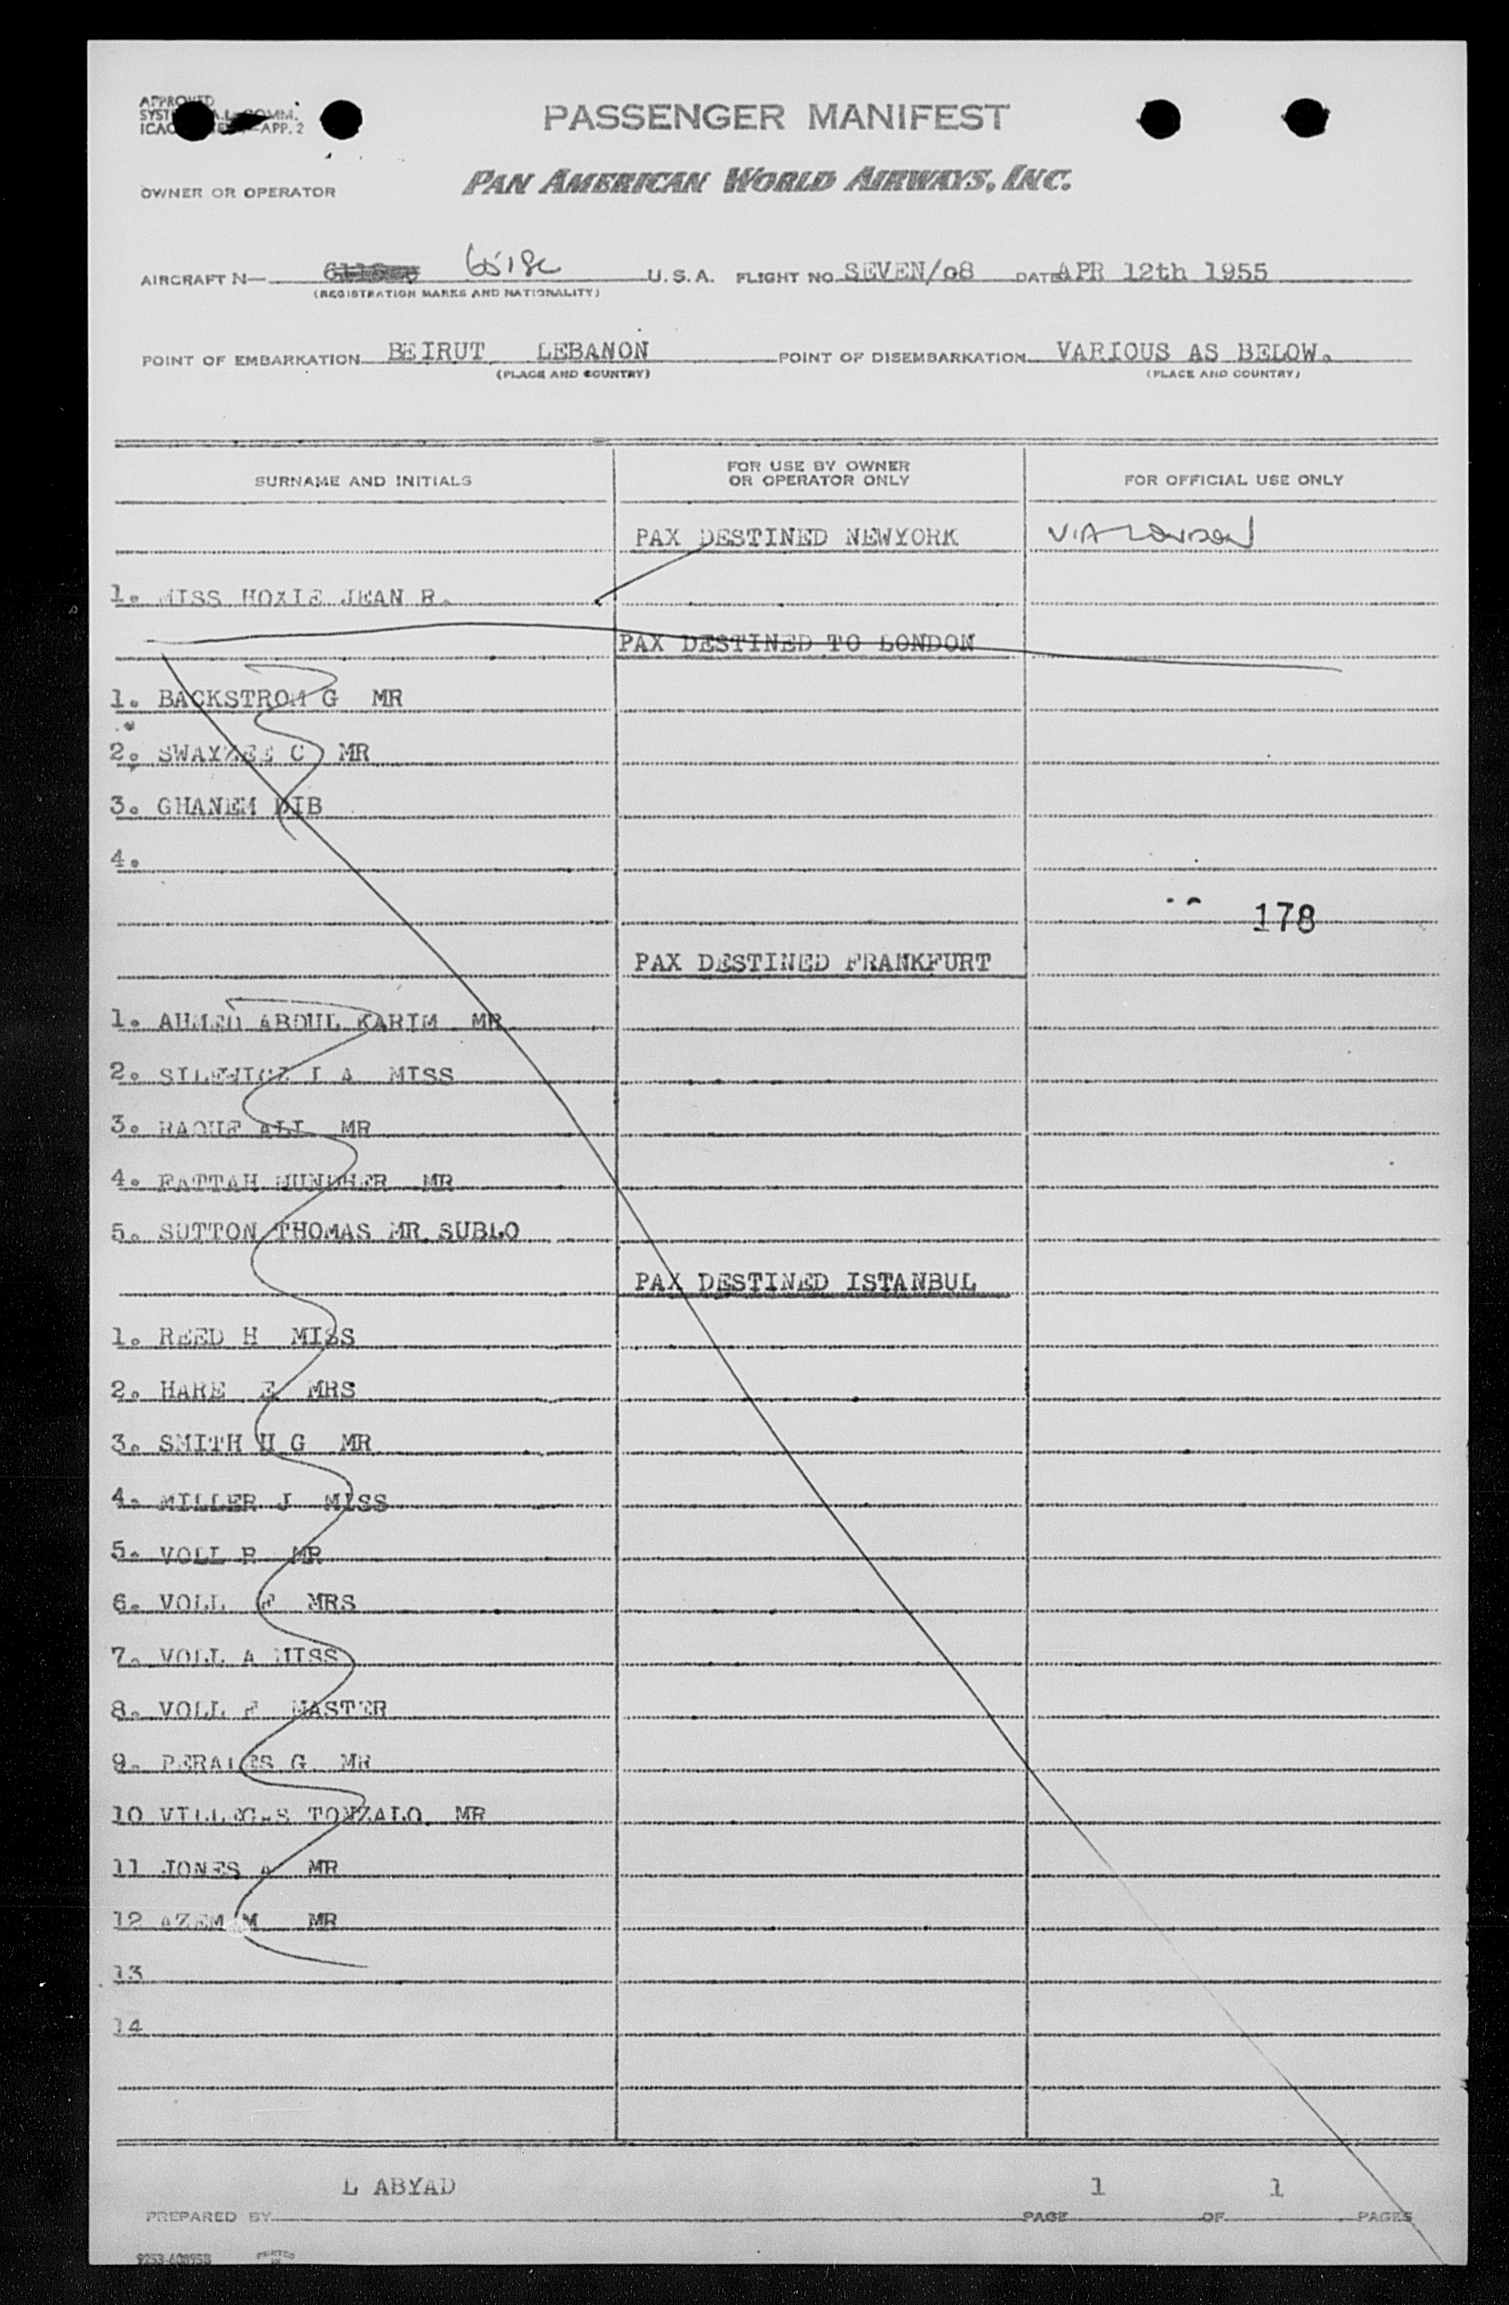 APPROVED
PASSENGER MANIFEST
APP. 2
PAN AMERICAN WORLD AIRWAYS, INC.
OWNER OR OPERATOR
AIRCRAFT N— 6518C U.S.A. FLIGHT NO. SEVEN/08 DATE APR 12th 1955
(REGISTRATION MARKS AND NATIONALITY)
POINT OF EMBARKATION BEIRUT LEBANON POINT OF DISEMBARKATION VARIOUS AS BELOW.
(PLACE AND COUNTRY) (PLACE AND COUNTRY)
SURNAME AND INITIALS FOR USE BY OWNER OR OPERATOR ONLY FOR OFFICIAL USE ONLY
PAX DESTINED NEWYORK VIA LONDON
1. MISS HOXIE JEAN R.
PAX DESTINED TO LONDON
1. BACKSTROM G MR
2. SWAYZEE C MR
3. GHANEM DIB
4.
178
PAX DESTINED FRANKFURT
1. AHMED ABDUL KARIM MR
2. SILEWICZ I A MISS
3. RAOUF ALI MR
4. FATTAH MUNDHER MR
5. SUTTON THOMAS MR SUBLO
PAX DESTINED ISTANBUL
1. REED H MISS
2. HARE E MRS
3. SMITH H G MR
4. MILLER J MISS
5. VOLL R MR
6. VOLL F MRS
7. VOLL A MISS
8. VOLL F MASTER
9. PERALES G MR
10 VILLEGAS TONZALO MR
11 JONES A MR
12 AZEM M MR
13
14
L ABYAD 1 1
PREPARED BY PAGE OF PAGES